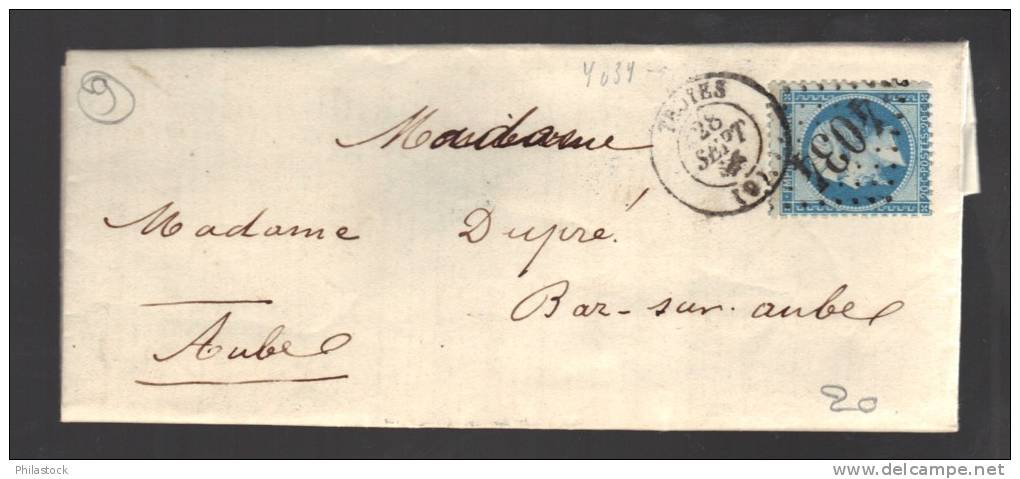 9
4034
TROYES
28
SEPT
(9)
4034
POSTES
Madame
Madame Dupré
Bar-sur-aube
Aube
20
Philastock
delcampe.net